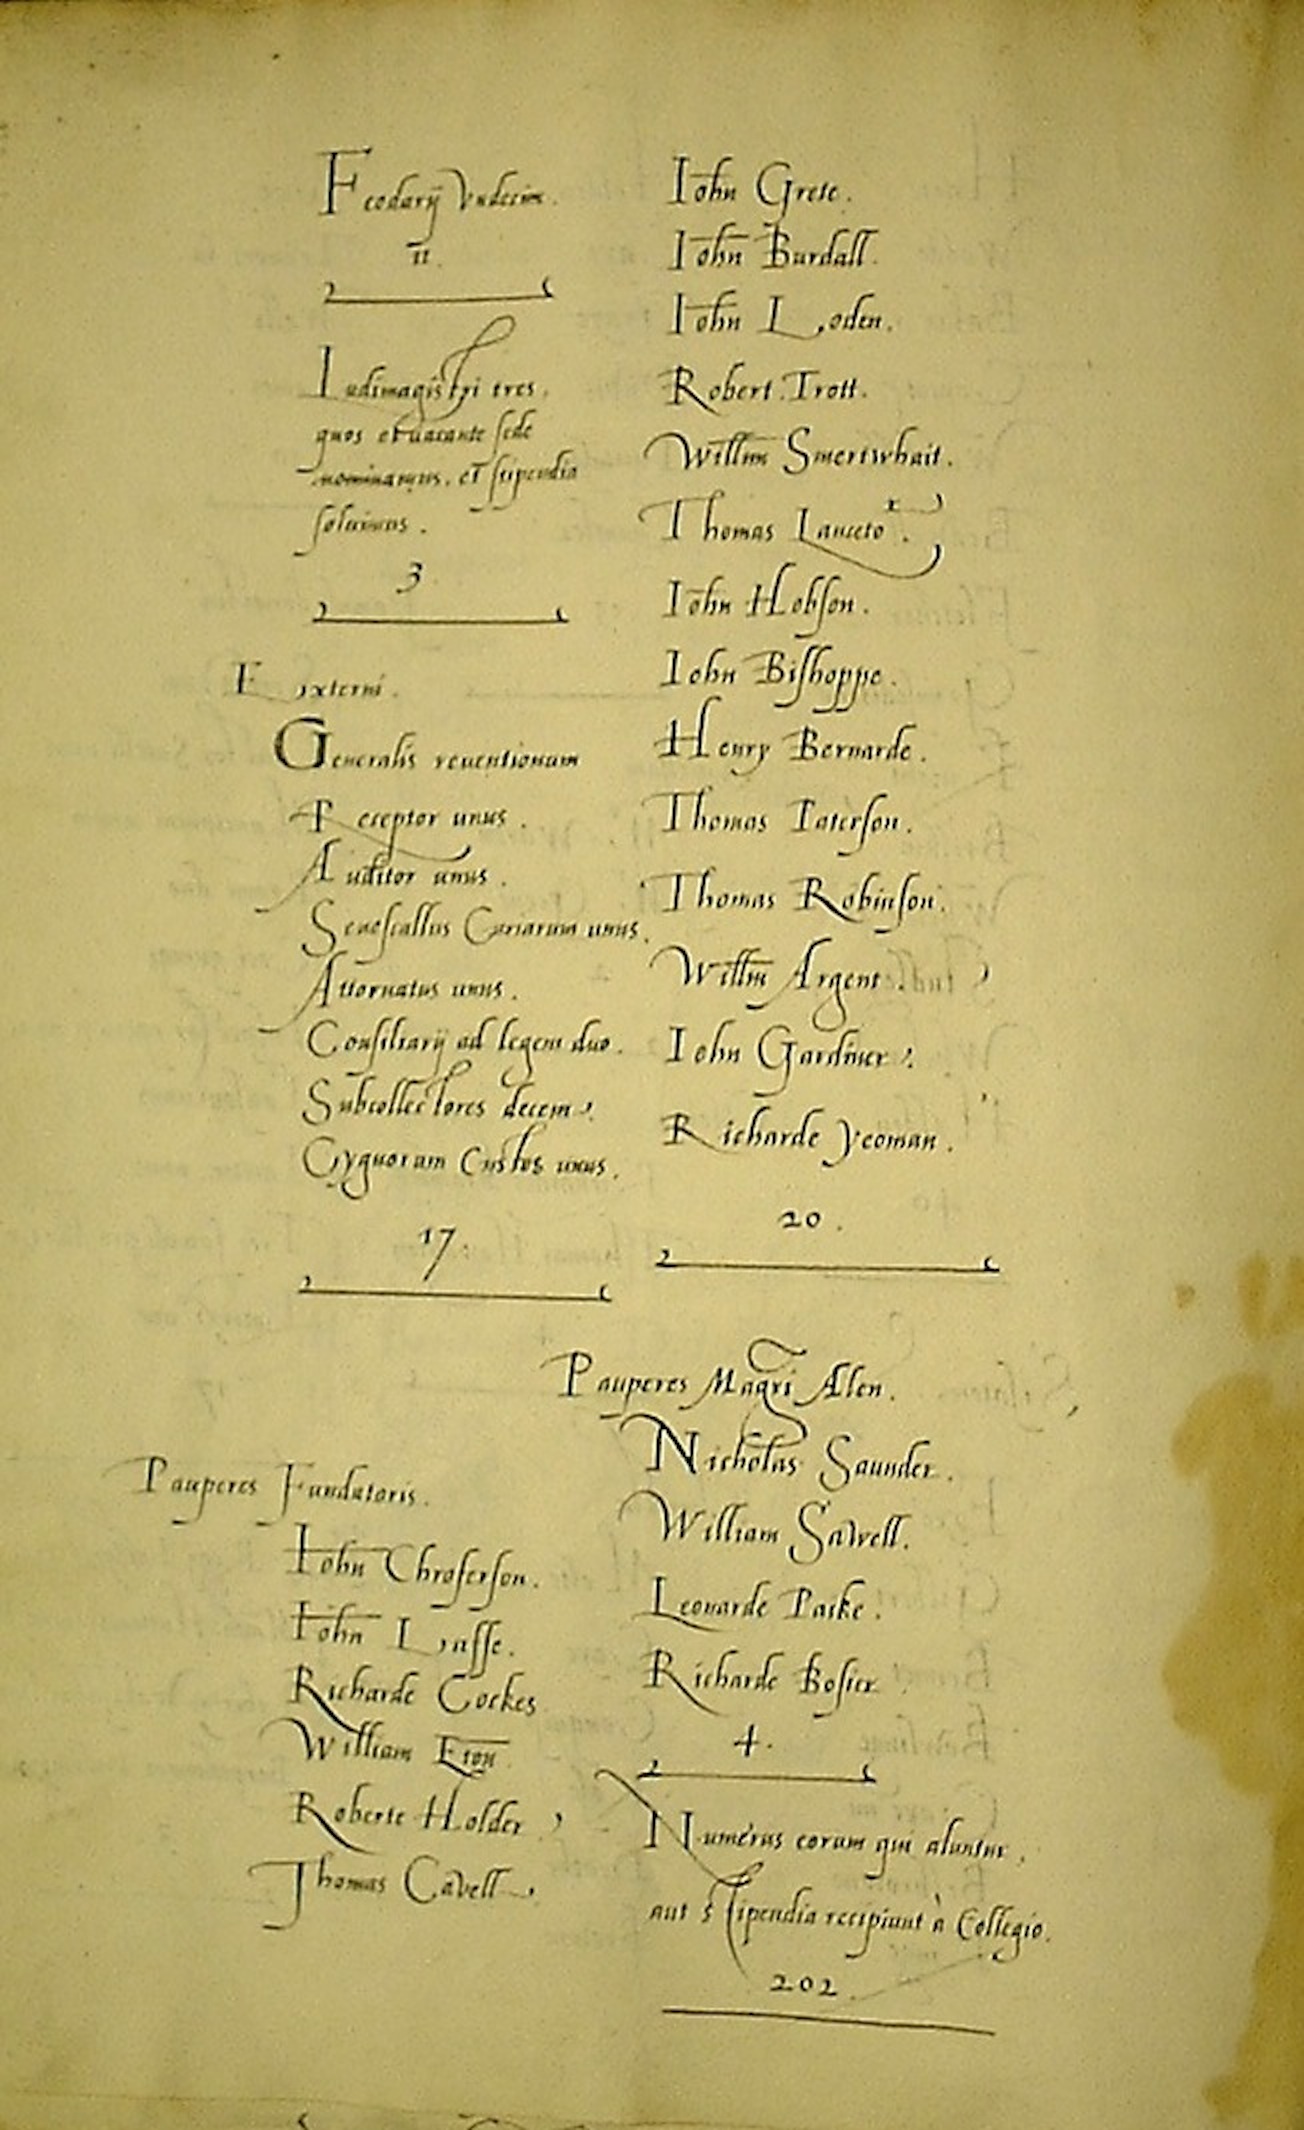 Feodarij Undecim.
11.
Ludimagistri tres.
quos et vacante sede
nominamus. et stipendia
soluimus.
3
Externi.
Generalis reuentionum
Receptor unus.
Auditor unus.
Senescallus Curiarum unus.
Attornatus unus.
Consiliarij ad legem duo.
Subcollectores decem.
Cygnorum Custos unus.
17.
Pauperes Fundatoris.
Iohn Chroferson.
Iohn Lasse.
Richarde Cockes
William Eton.
Roberte Holder
Thomas Cavell.
Iohn Grete.
Iohn Burdall.
Iohn Loden.
Robert Trott.
Willm Smertwhait.
Thomas Lancetor.
Iohn Hobson.
Iohn Bishoppe.
Henry Bernarde.
Thomas Paterson.
Thomas Robinson.
Willm Argent.
Iohn Gardiner.
Richarde Yeoman.
20.
Pauperes Magri Allen.
Nicholas Saunder.
William Sawell.
Leonarde Paske.
Richarde Bosier.
4.
Numerus eorum qui aluntur,
aut stipendia recipiunt à Collegio.
202.